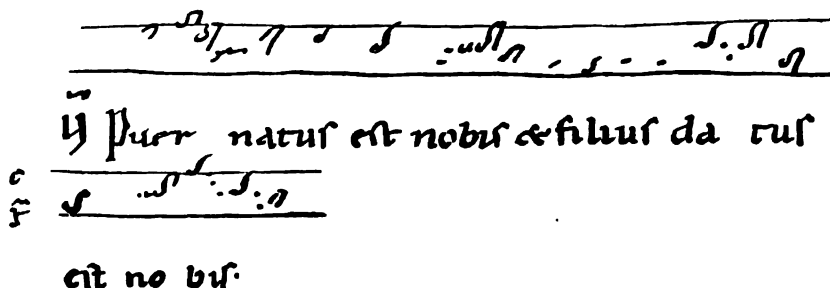 Puer natuſ eſt nobiſ & filiuſ da tuſ
c
F
eſt no biſ.